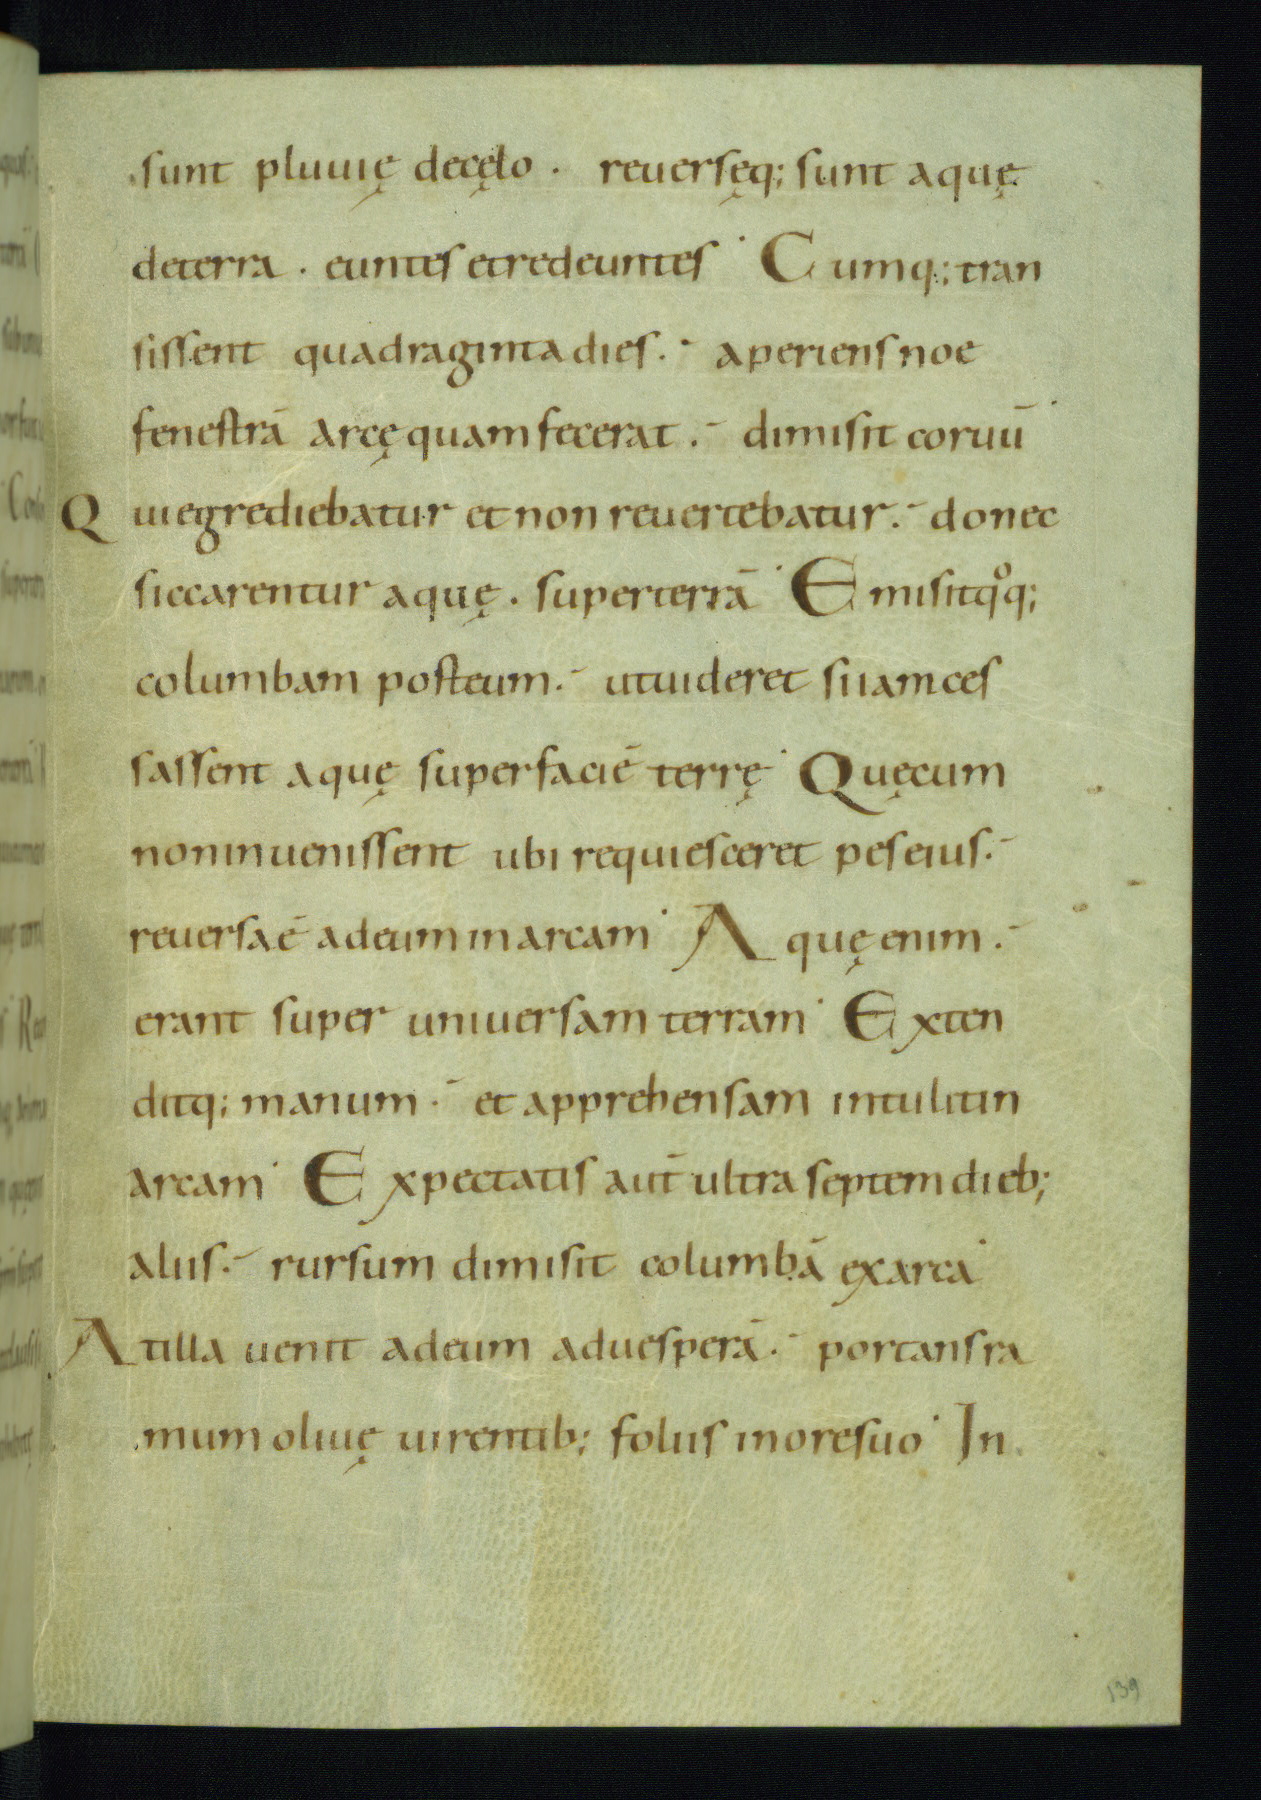 sunt pluuię decęlo . reuersęq; sunt aquę
deterra . euntes etredeuntes˙ Cumq; tran
sissent quadraginta dies .˜ aperiens noe
fenestrā arcę quam fecerat .˜ dimisit coruū˙
Qui egrediebatur et non reuertebatur .˜ donec
siccarentur aquę . superterrā˙ Emisit qͦq;
columbam posteum .˜ utuideret siiamces
sassent aquę superfaciē terrę˙ Quęcum
noninuenissent ubi requiesceret pes eius .˜
reuersaē adeum inarcam˙ Aquęenim .˜
erant super uniuersam terram˙ Exten
ditq; manum .˜ et apprehensam intulitin
arcam˙ Expectatis aut̄ ultra septem dieb;
aliis .˜ rursum dimisit columbā exarca˙
Atilla uenit adeum aduesperā .˜ portansra
mum oliuę uirentib; foliis inoresuo˙ In
139